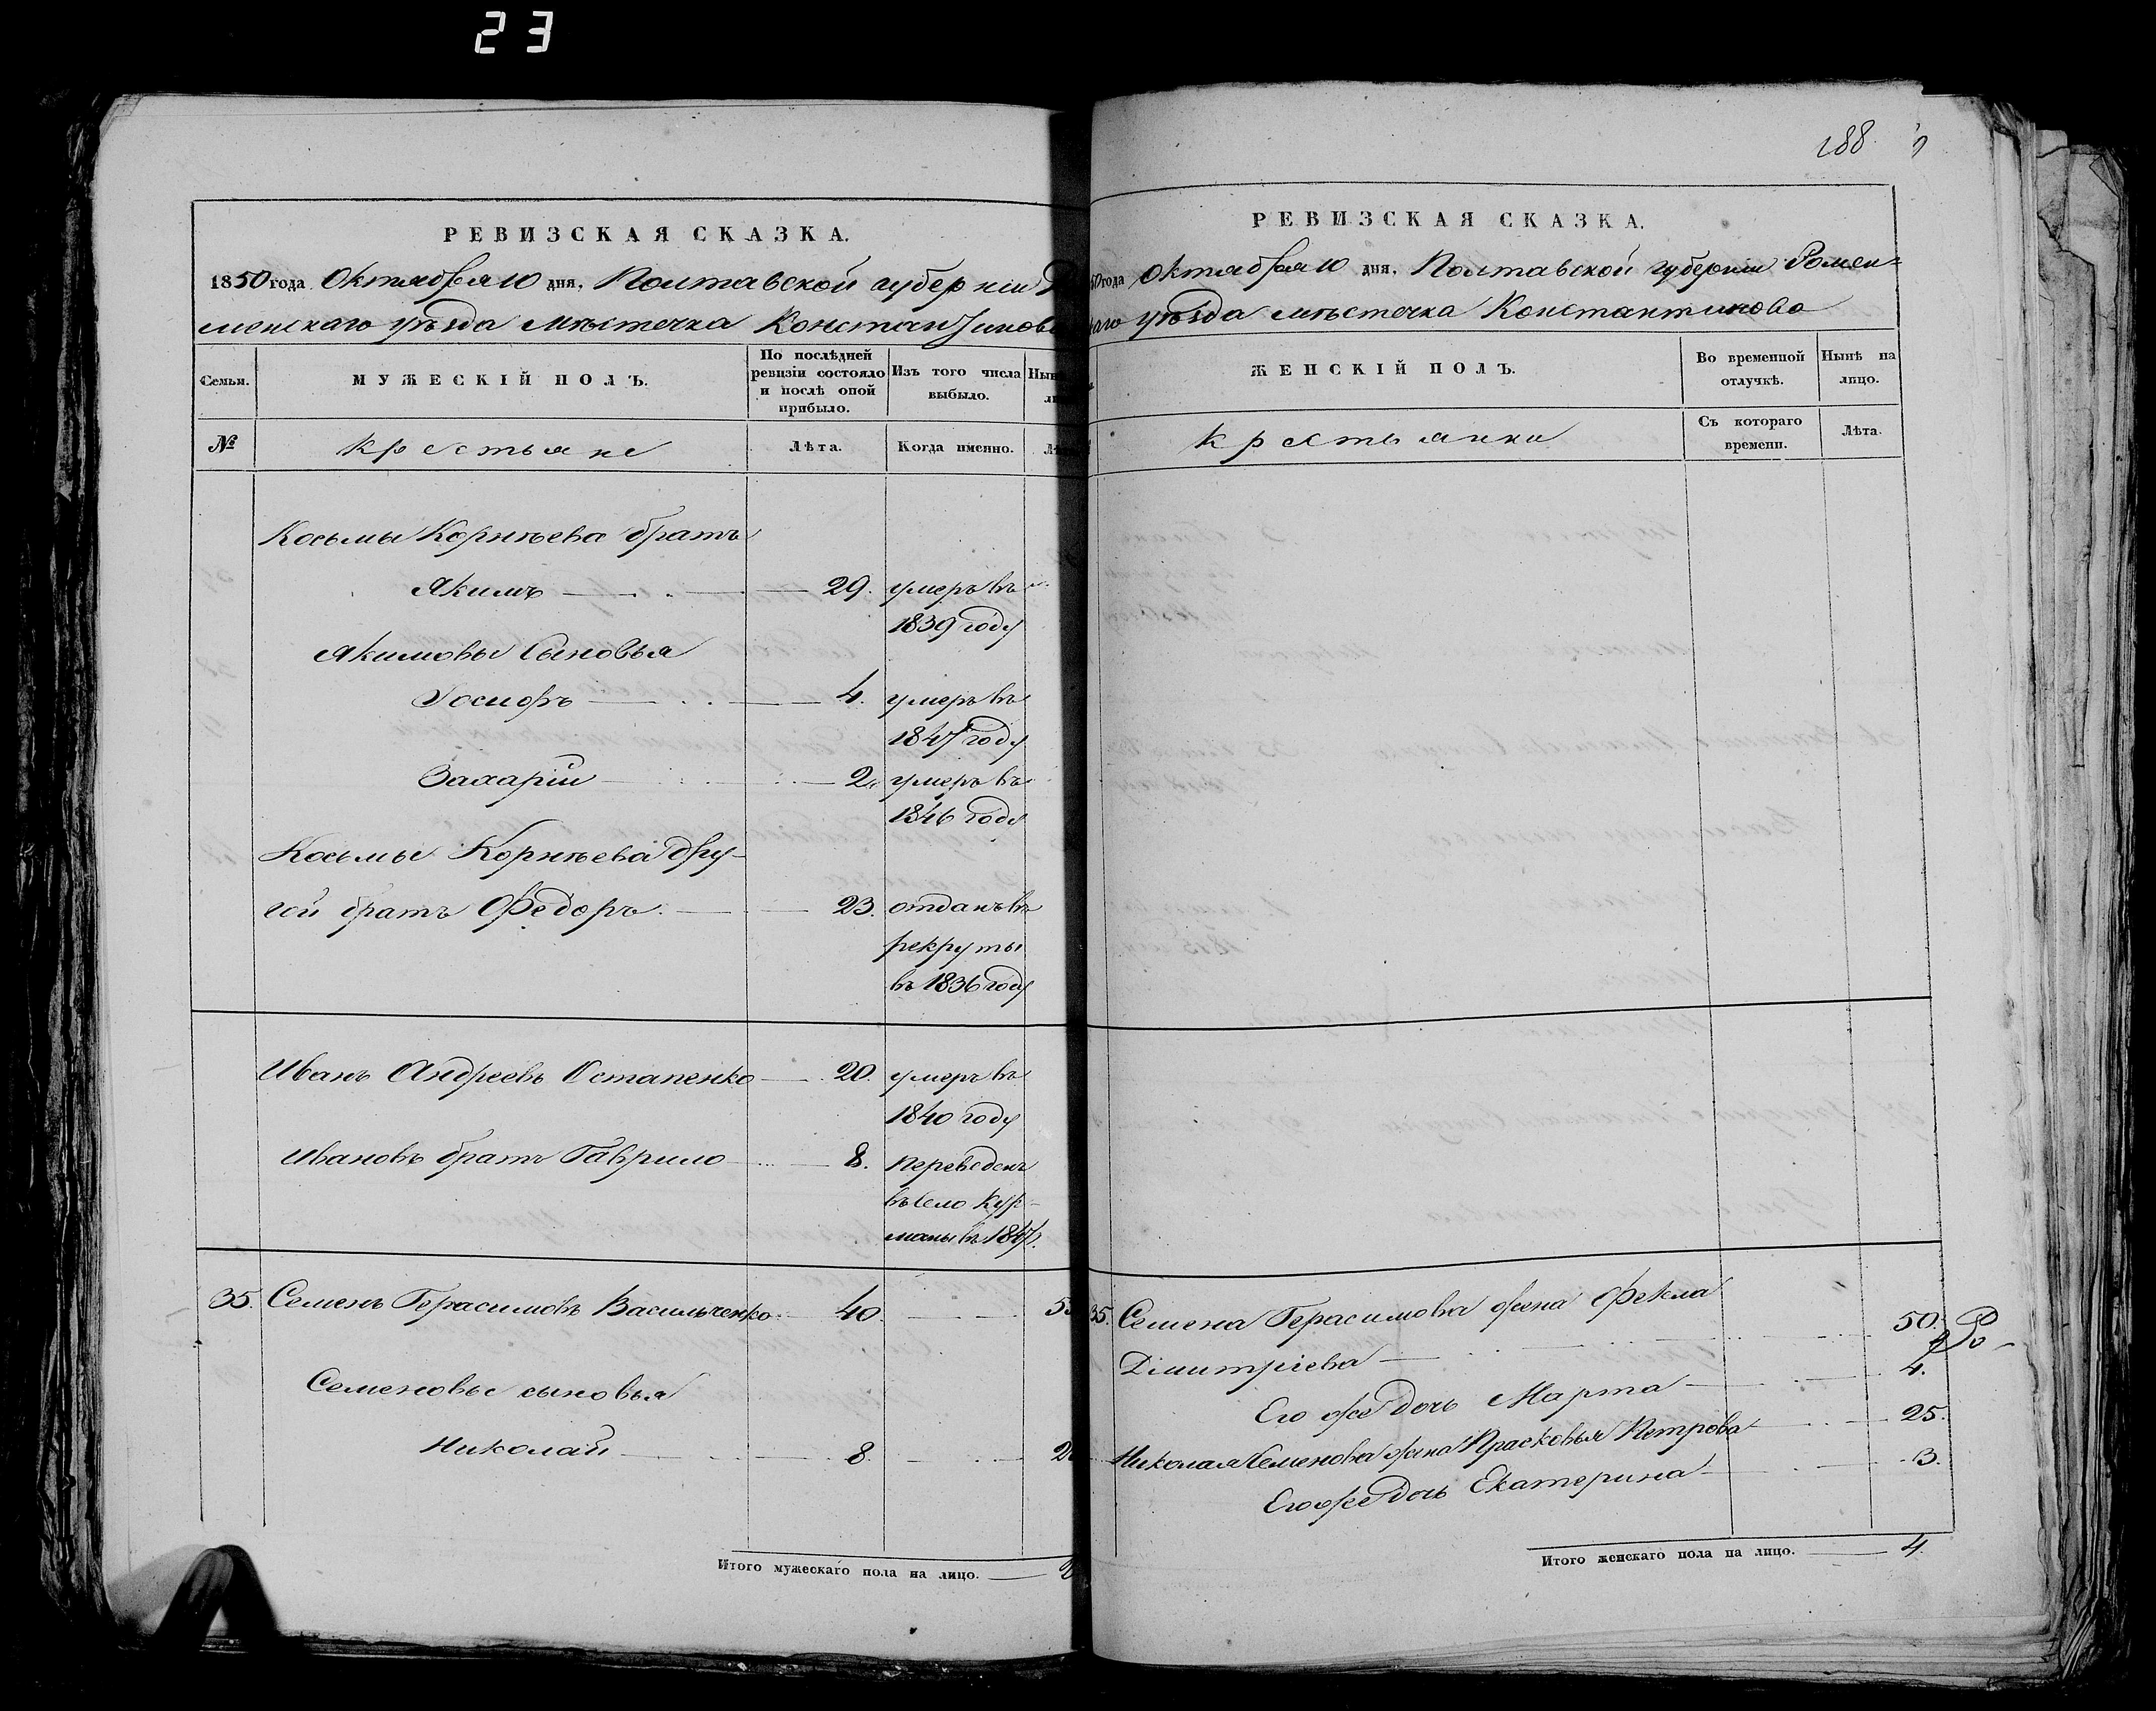 23
РЕВИЗСКАЯ СКАЗКА.
1850 года Октября 10 дня, Полтавской губерніи
менскаго уѣзда мѣстечка Константинова
Семьи.
МУЖЕСКІЙ ПОЛЪ.
По послѣдней ревизіи состояло и послѣ оной прибыло.
Изъ того числа выбыло.
№
крестьяне
Лѣта.
Когда именно.
Косьмы Корнѣева братъ
Якимъ 29. умеръ въ
1839 году
Якимовы Сыновья
Іосифъ 4. умеръ въ
1847 году
Захарій 2. умеръ въ
1846 году
Косьмы Корнѣева дру-
гой братъ Федоръ 23. отданъ въ
рекруты
въ 1836 году
Иванъ Андреевъ Остапенко 20. умеръ въ
1840 году
Ивановъ братъ Гаврило 8. переведенъ
въ село Кур-
маны въ 1847.
35. Семенъ Герасимовъ Васильченко 40.
Семеновы сыновья
Николай 8.
Итого мужескаго пола на лицо.
188
РЕВИЗСКАЯ СКАЗКА.
года Октября 10 дня, Полтавской губерніи Ромен=
уѣзда мѣстечка Константинова
ЖЕНСКІЙ ПОЛЪ.
Во временной отлучкѣ.
Нынѣ на лицо.
крестьянки
Съ котораго времени.
Лѣта.
35. Семена Герасимова жена Фекла
Димитріева 50.
Его же дочь Марта 4.
Николая Семенова жена Прасковья Петрова 25.
Его же дочь Екатерина 3.
Итого женскаго пола на лицо. 4.